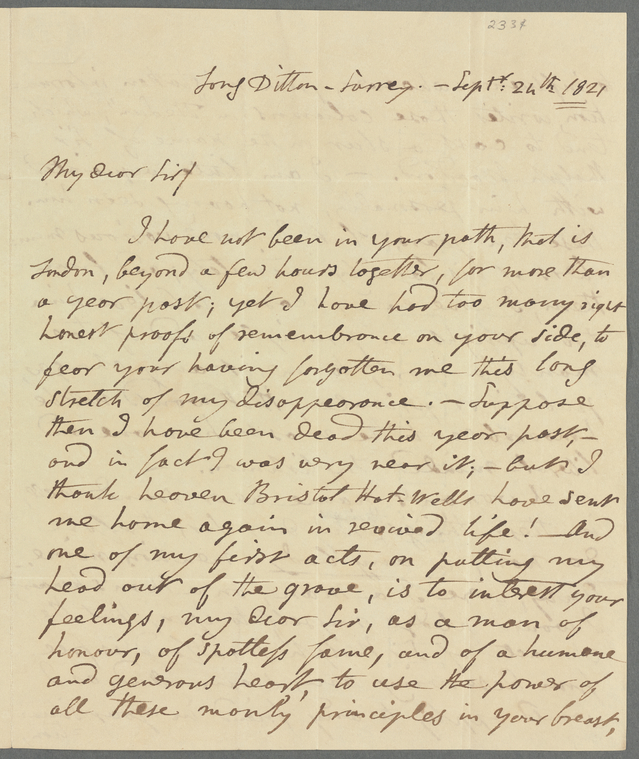 2334
Long Ditton - Surrey. - Septr. 24th 1821
My dear Sir/
I have not been in your path, that is
London, beyond a few hours together, for more than
a year past; yet I have had too many right
honest proofs of remembrance on your side, to
fear your having forgotten me this long
stretch of my disappearance. - Suppose
then I have been dead this year past, -
and in fact I was very near it; - but I
thank heaven Bristol Hot-Wells have sent
me home again in revived life! - And
one of my first acts, on putting my
head out of the grave, is to interest your
feelings, my dear Sir, as a man of
honour, of spotless fame, and of a humane
and generous heart, to use the power of
all these manly principles in your breast,